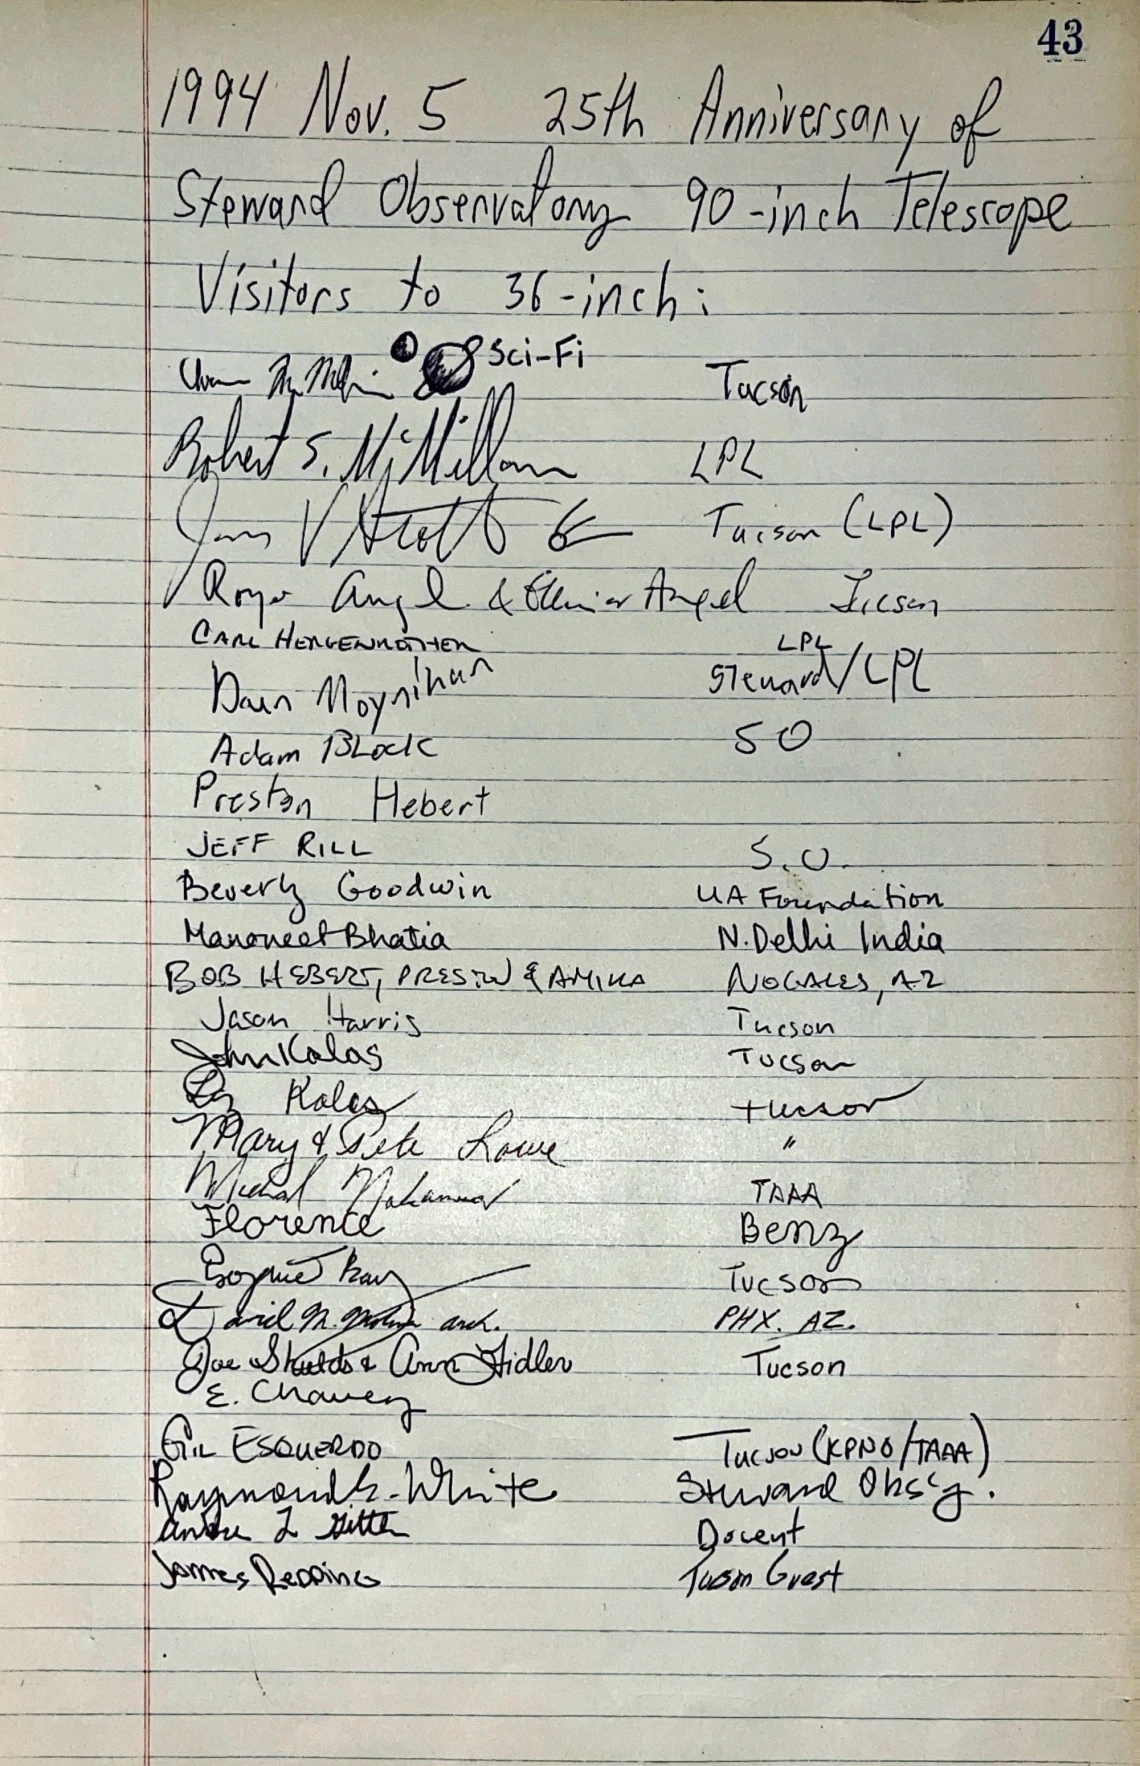 43
1994 Nov. 5 25th Anniversary of
Steward Observatory 90-inch Telescope
Visitors to 36-inch:
Sci-Fi Tucson
Robert S. McMillan LPL
Jim V Scotti Tucson (LPL)
Roger Angel & Ellinor Angel Tucson
CARL HERGENROTHER LPL
Dain Moynihan Steward/LPL
Adam Block SO
Preston Hebert
JEFF RILL S.O.
Beverly Goodwin UA Foundation
Manoneet Bhatia N.Delhi India
BOB HEBERT, PRESTON & AMIKA NOGALES, AZ
Jason Harris Tucson
John Kalas Tucson
Kalas tucson
Mary & Pete Lowe "
Michal TAAA
Florence Benz
Sophie Tucson
David M. arch. PHX. AZ.
Joe Shields & Ann Fidler Tucson
E. Chavez
GIL ESQUERDO Tucson (KPNO/TAAA)
Raymond E. White Steward Obs'y.
L Docent
James Redding Tucson Guest